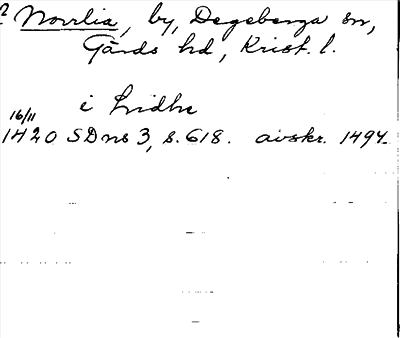 ? Norrlia, by, Degeberga sn,
Gärds hd, Krist. l.
i Lridhe
16/11
1420 SDns 3, s. 618. avskr. 1494.